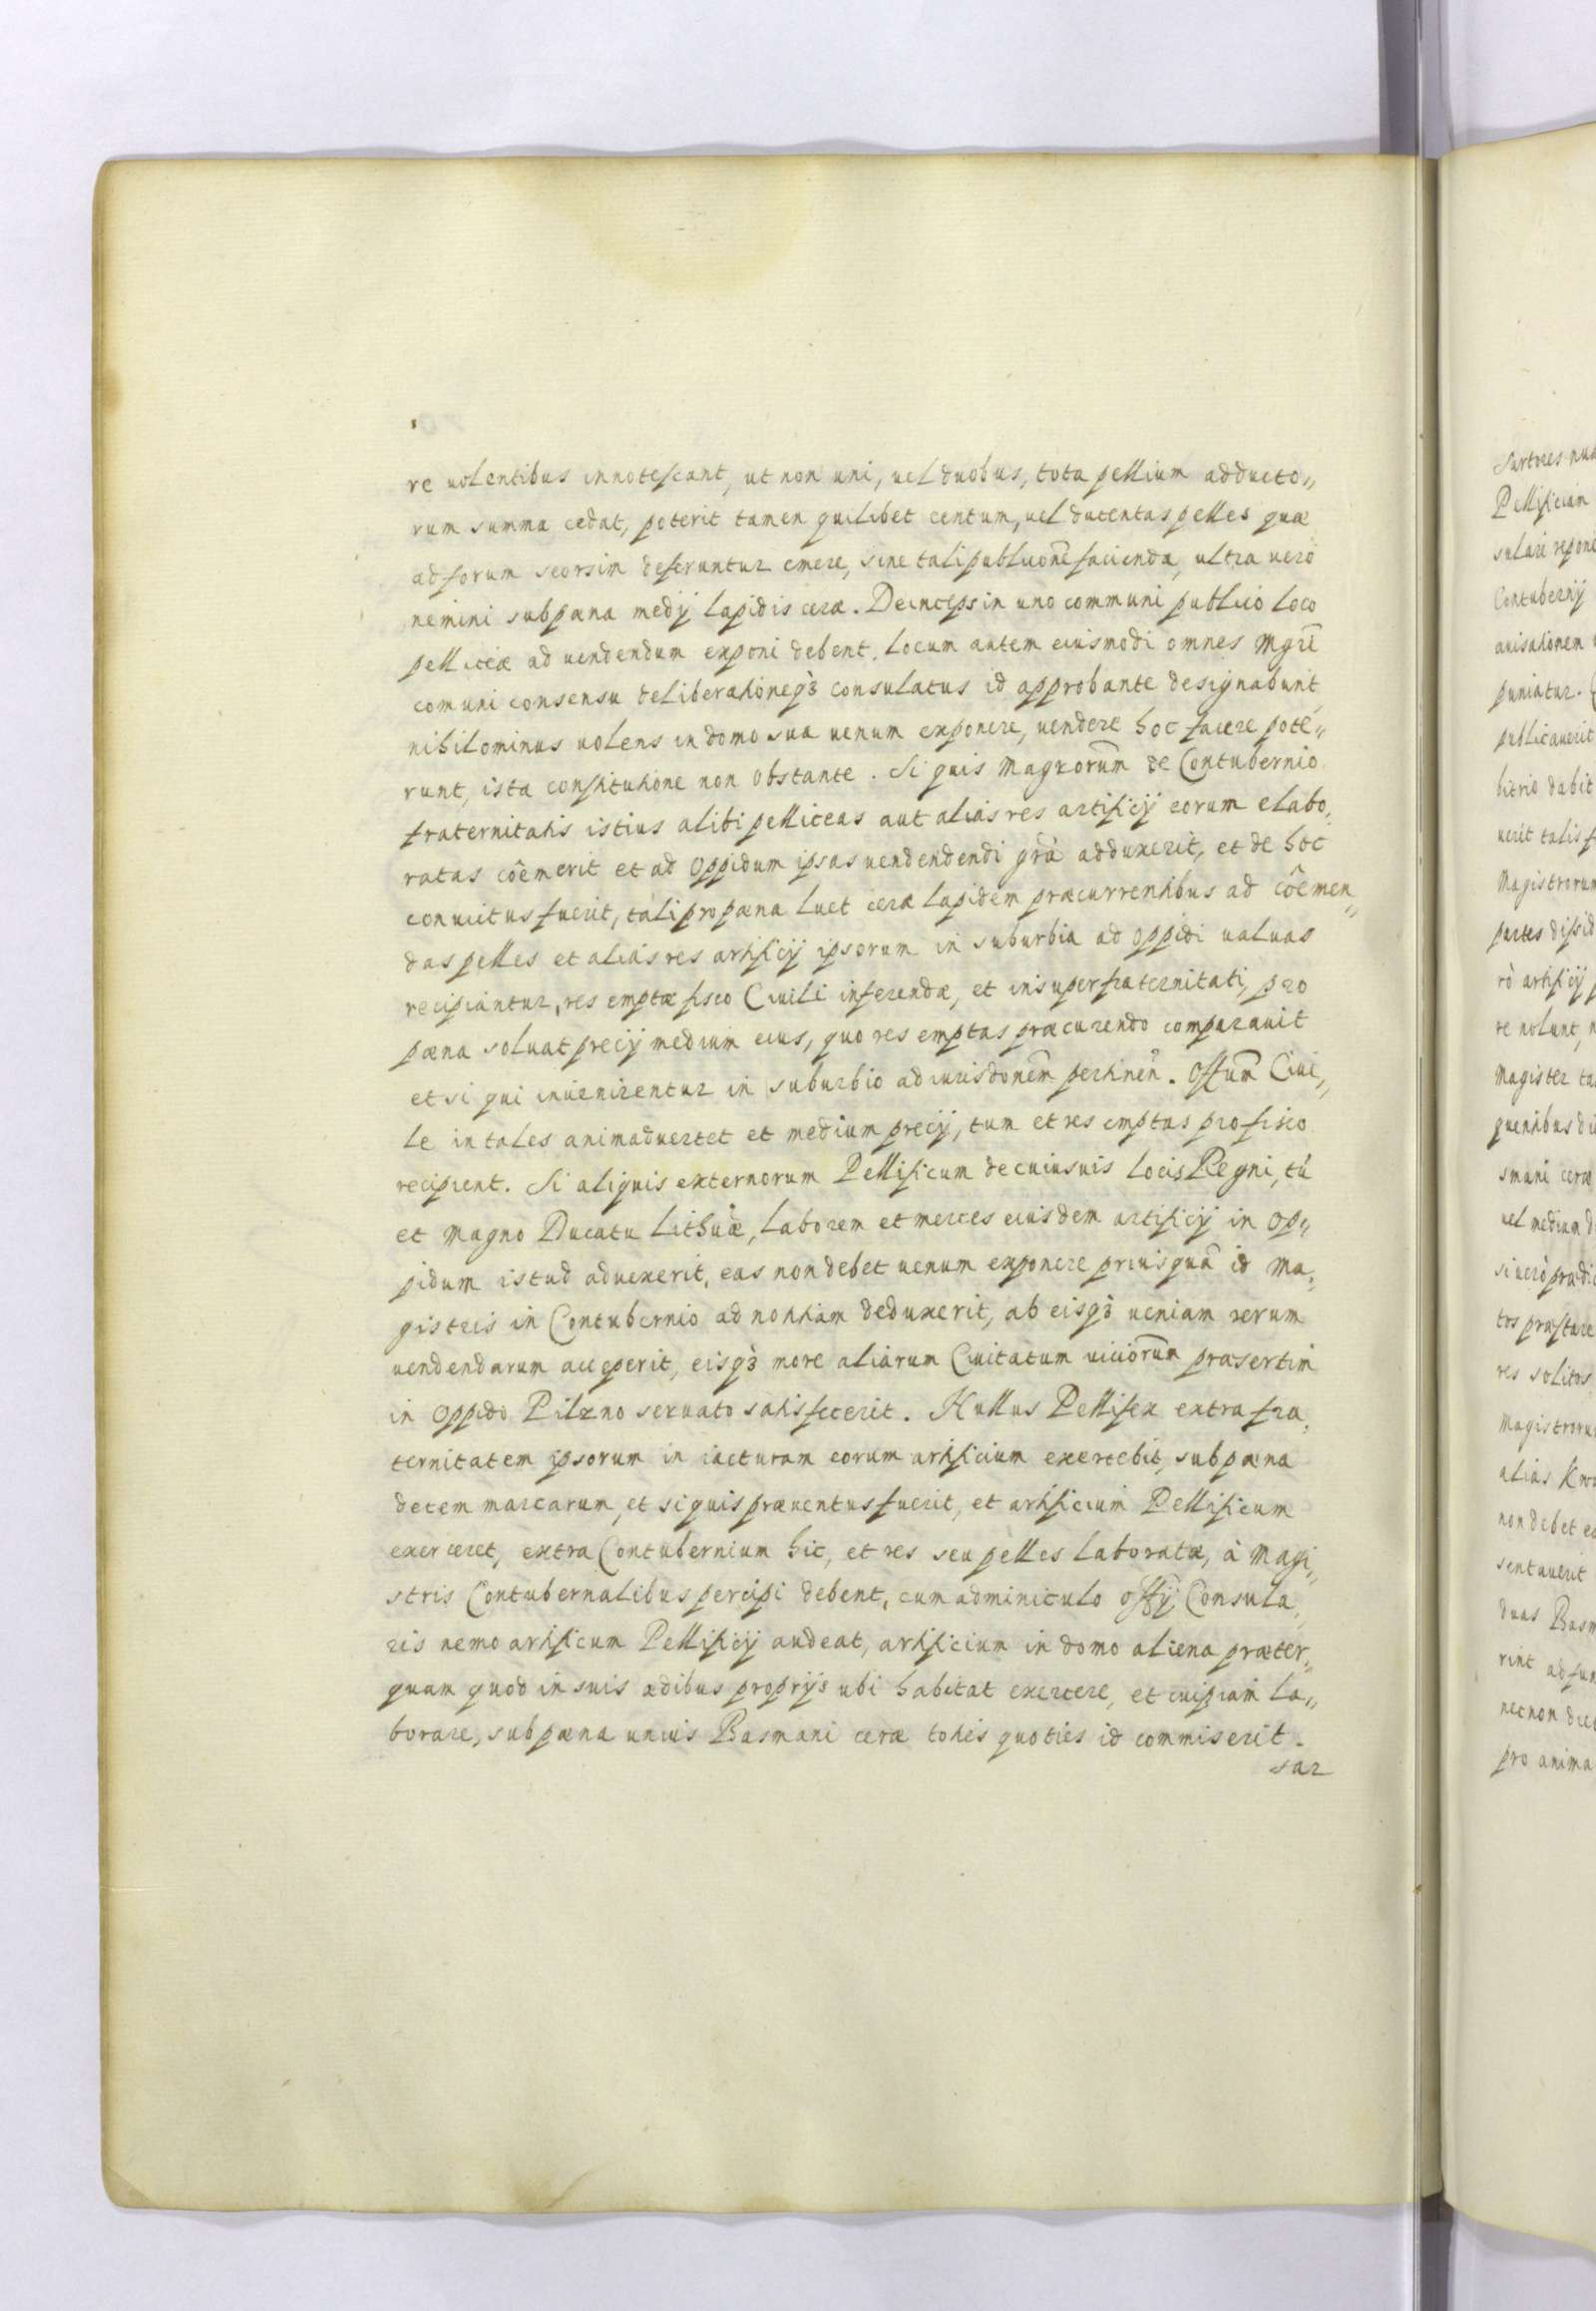 re uolentibus innotescant, ut non uni, uel duobus, tota pellium adducto„
rum summa cedat, poterit tamen quilibet centum, uel ducentas pelles quæ
ad forum seorsim deferuntur emere, sine tali publicōne facienda, ultra uerò
nemini sub pæna medij lapidis ceræ. Deinceps in uno communi publico loco
pelliceæ ad uendendum exponi debent. Locum autem eiusmodi omnes Mgrī
comuni consensu deliberationeqꝫ consulatus id approbante designabunt
nihilominus uolens in domo sua uenum exponere, uendere hoc facere pote„
runt, ista constitutione non obstante. Si quis Magrorum̃ de Contubernio
fraternitatis istius alibi pelliceas aut alias res artificij eorum elabo„
ratas cõemerit et ad Oppidum ipsas uendendendi grã adduxerit, et de hoc
conuictus fuerit, tali pro pæna luet ceræ lapidem præcurrentibus ad cõemen„
das pelles et alias res artificij ipsorum in suburbia ad Oppidi ualuas
recipiantur, res emptæ fisco Ciuili inferendæ, et insuper fraternitati, pro
pæna soluat precij medium eius, quo res emptas præcurendo comparauit
et si qui inuenirentur in suburbio ad iurisdonem̃ pertinen̄. Offum̃ Ciui„
le in tales animaduertet et medium precij, tum et res emptas pro fisco
recipient. Si aliquis externorum Pellificum de cuiusuis locis Regni, tū
et Magno Ducatu Lithuæ, Laborem et merces eiusdem artificij in Op„
pidum istud aduexerit, eas non debet uenum exponere priusquā id Ma„
gistris in Contubernio ad notitiam deduxerit, ab eisqꝫ ueniam rerum
uendendarum acceperit, eisqꝫ more aliarum Ciuitatum uiciorum̃ præsertim
in Oppido Pilzno seruato satisfecerit. Nullus Pellifex extra fra„
ternitatem ipsorum in iacturam eorum artificium exercebit, sub pæna
decem marcarum, et si quis præuentus fuerit, et artificium Pellificum
exerceret, extra Contubernium hic, et res seu pelles laboratæ, à Magi„
stris Contubernalibus percipi debent, cum adminiculo offij Consula„
ris nemo artificum Pellificij audeat, artificium in domo aliena præter„
quam quod in suis ædibus proprijs ubi habitat exercere, et cuipiam la„
borare, sub pæna unius Basmani ceræ toties quoties id commiserit.
sar